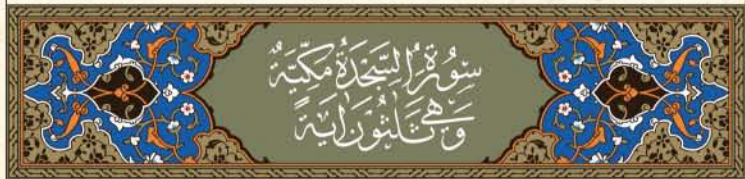 سُورَةُ السَّجْدَةِ مَكِّيَّةٌ
وَهِيَ ثَلٰثُونَ اٰيَةً